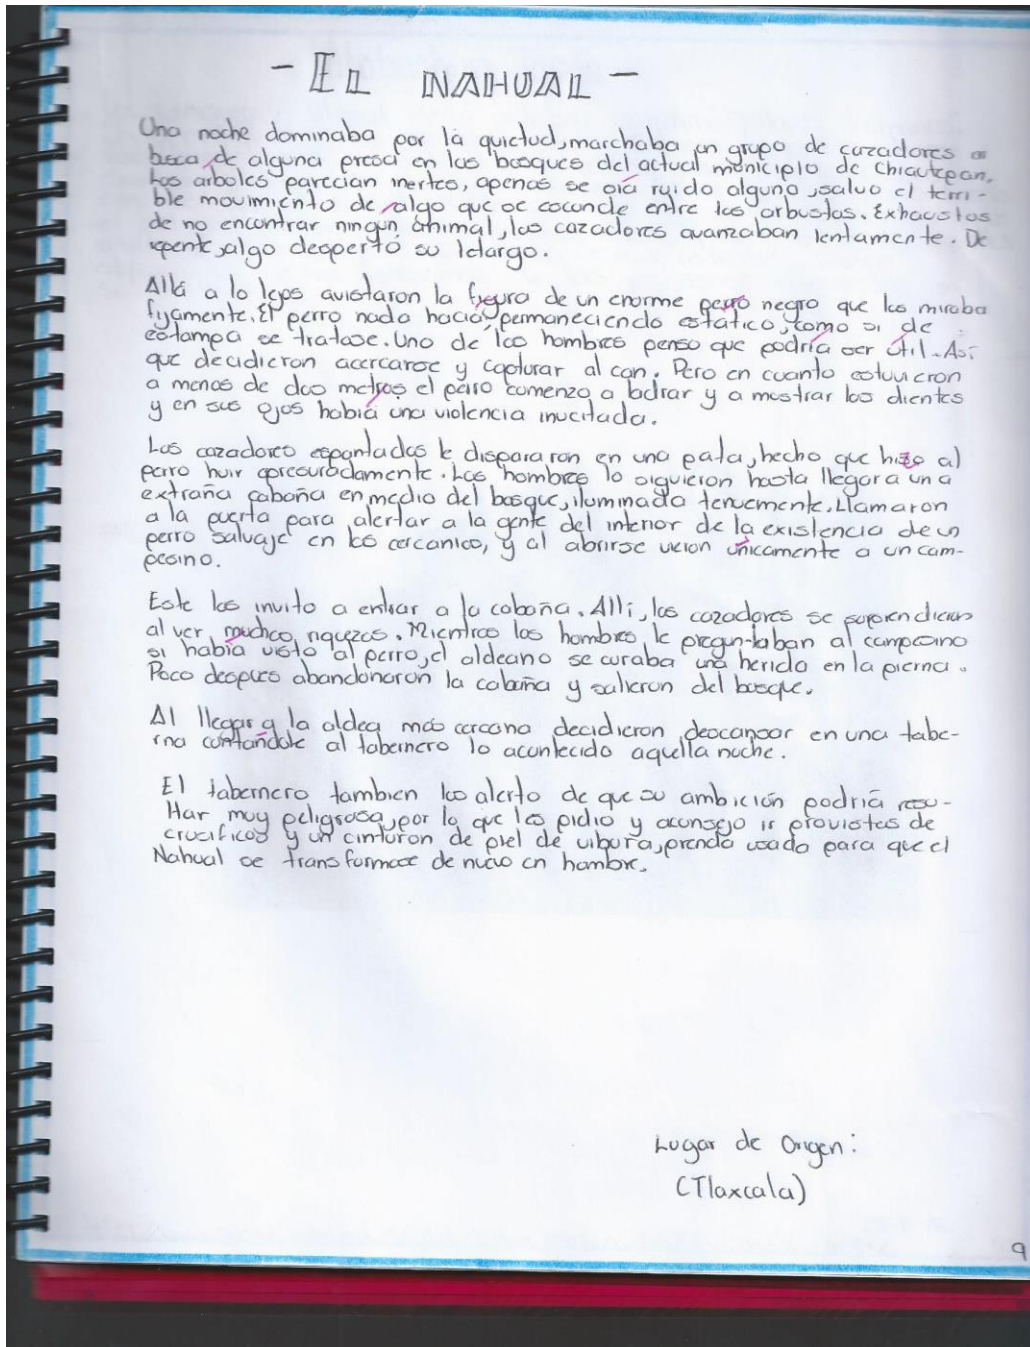 - EL NAHUAL -
Una noche dominaba por la quietud, marchaba un grupo de cazadores en
busca de alguna presa en los bosques del actual municipio de Chiautepan.
Los arboles parecian inertes, apenas se oía ruido alguno, salvo el terri-
ble movimiento de algo que se esconde entre los arbustos. Exhaustos
de no encontrar ningun animal, los cazadores avanzaban lentamente. De
repente, algo desperto su letargo.
Allá a lo lejos avistaron la figura de un enorme perro negro que los miraba
fijamente. El perro nada hacía, permaneciendo estático, como si de
estampa se tratase. Uno de los hombres penso que podría ser útil. Así
que decidieron acercarse y capturar al can. Pero en cuanto estuvieron
a menos de dos metros el perro comenzo a ladrar y a mostrar los dientes
y en sus ojos había una violencia inucitada.
Los cazadores espantados le dispararon en una pata, hecho que hizo al
perro huir apresuradamente. Los hombres lo siguieron hasta llegar a una
extraña cabaña en medio del bosque, iluminada tenuemente. Llamaron
a la puerta para alertar a la gente del interior de la existencia de un
perro salvaje en las cercanias, y al abrirse vieron únicamente a un cam-
pesino.
Este los invito a entrar a la cabaña. Allí, los cazadores se suprendieron
al ver muchas riquezas. Mientras los hombres le preguntaban al campesino
si había visto al perro, el aldeano se curaba una herida en la pierna.
Poco despues abandonaron la cabaña y salieron del bosque.
Al llegar a la aldea más cercana decidieron descansar en una tabe-
rna contandole al tabernero lo acontecido aquella noche.
El tabernero tambien los alerto de que su ambición podría resu-
ltar muy peligrosa, por lo que les pidio y aconsejo ir provistos de
crucificos y un cinturon de piel de vibura, prenda usada para que el
Nahual se transformase de nuevo en hombre.
Lugar de Origen:
(Tlaxcala)
9